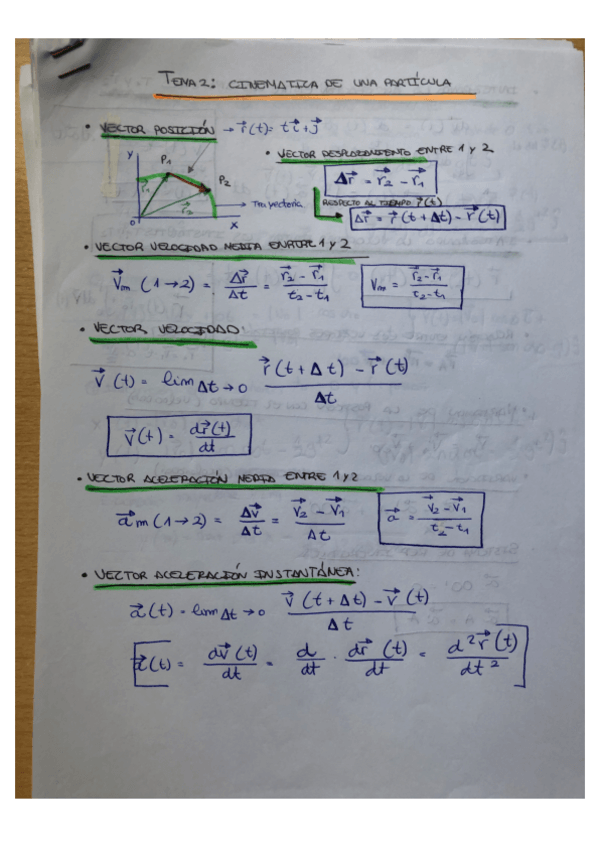 TEMA 2: CINEMATICA DE UNA PARTÍCULA
• VECTOR POSICIÓN → r⃗(t)= t i⃗ + j⃗
• VECTOR DESPLAZAMIENTO ENTRE 1 y 2
Δr⃗ = r⃗₂ - r⃗₁
RESPECTO AL TIEMPO r⃗(t)
Δr⃗ = r⃗(t+Δt) - r⃗(t)
Y P₁ P₂ r⃗₁ r⃗₂ O X Trayectoria
• VECTOR VELOCIDAD MEDIA ENTRE 1 y 2
V⃗m (1→2) = Δr⃗/Δt = (r⃗₂ - r⃗₁)/(t₂ - t₁) Vm = (r⃗₂ - r⃗₁)/(t₂ - t₁)
• VECTOR VELOCIDAD
v⃗(t) = lim Δt→0 (r⃗(t+Δt) - r⃗(t))/Δt
v⃗(t) = dr⃗(t)/dt
• VECTOR ACELERACIÓN MEDIA ENTRE 1 y 2
a⃗m (1→2) = Δv⃗/Δt = (v⃗₂ - v⃗₁)/Δt a⃗ = (v⃗₂ - v⃗₁)/(t₂ - t₁)
• VECTOR ACELERACIÓN INSTANTÁNEA:
a⃗(t) = lim Δt→0 (v⃗(t+Δt) - v⃗(t))/Δt
a⃗(t) = dv⃗(t)/dt = d/dt · dr⃗(t)/dt = d²r⃗(t)/dt²